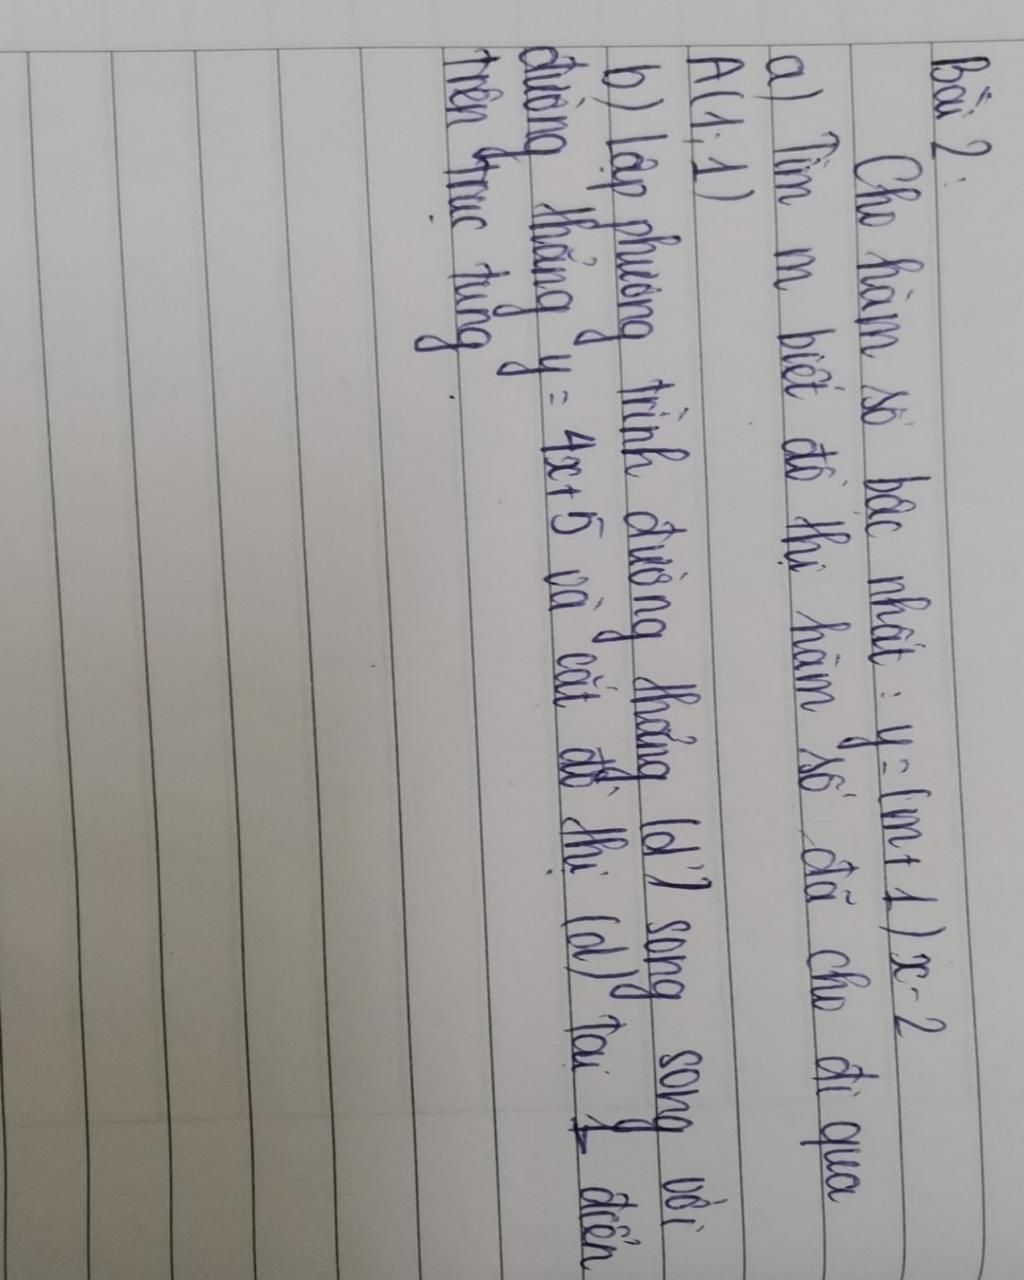 Bài 2:
Cho hàm số bậc nhất : y = (m + 1) x - 2
a) Tìm m biết đồ thị hàm số đã cho đi qua
A(1; 1)
b) lập phương trình đường thẳng (d') song song với
đường thẳng y = 4x + 5 và cắt đồ thị (d) tại 1 điểm
trên trục tung